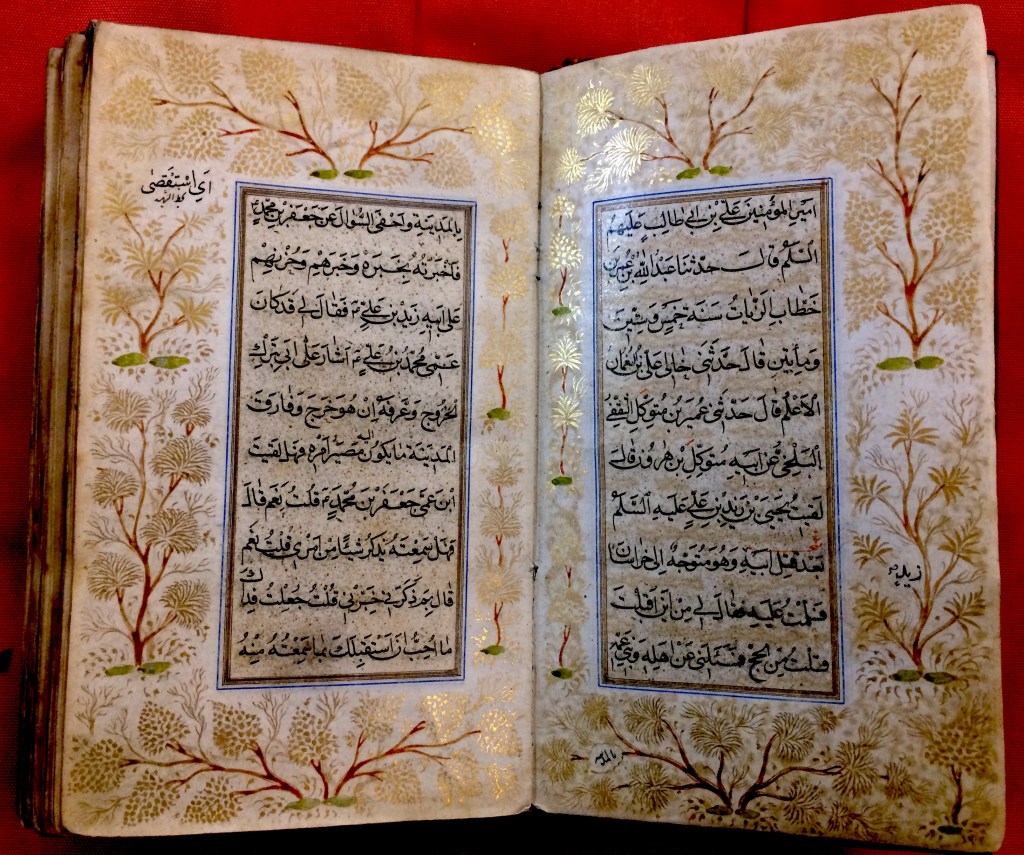 امير المؤمنين علي بن ابي طالب عليهم
السلم قال حدثنا عبد الله بن عمر بن
خطاب الزيات سنة خمس وستين
ومأتين قال حدثنى خالى على بن نعمان
الاعلم قال حدثنى عمير بن متوكل الثقفى
البلخى عن ابيه متوكل بن هرون قال
لقيت يحيى بن زيد بن علي عليه السلم
بعد قتل ابيه وهو متوجه الى خراسان
فسلمت عليه فقال لي من اين اقبلت
قلت من الحج فسئلنى عن اهله وبنى عمه
بالمدينة واحفى السؤال عن جعفر بن محمد
فاخبرته بخبره وخبرهم وحزنهم
على ابيه زيد بن علي فقال لي قد كان
عمى محمد بن علي اشار على ابي بترك
الخروج وعرفه ان هو خرج وفارق
المدينة ما يكون اليه مصير امره فهل لقيت
ابن عمى جعفر بن محمد قلت نعم قال
فهل سمعته يذكر شيئا من امرى قلت نعم
قال بم ذكرنى خبرنى قلت جعلت فداك
ما احب ان استقبلك بما سمعته منه
اى استقصى